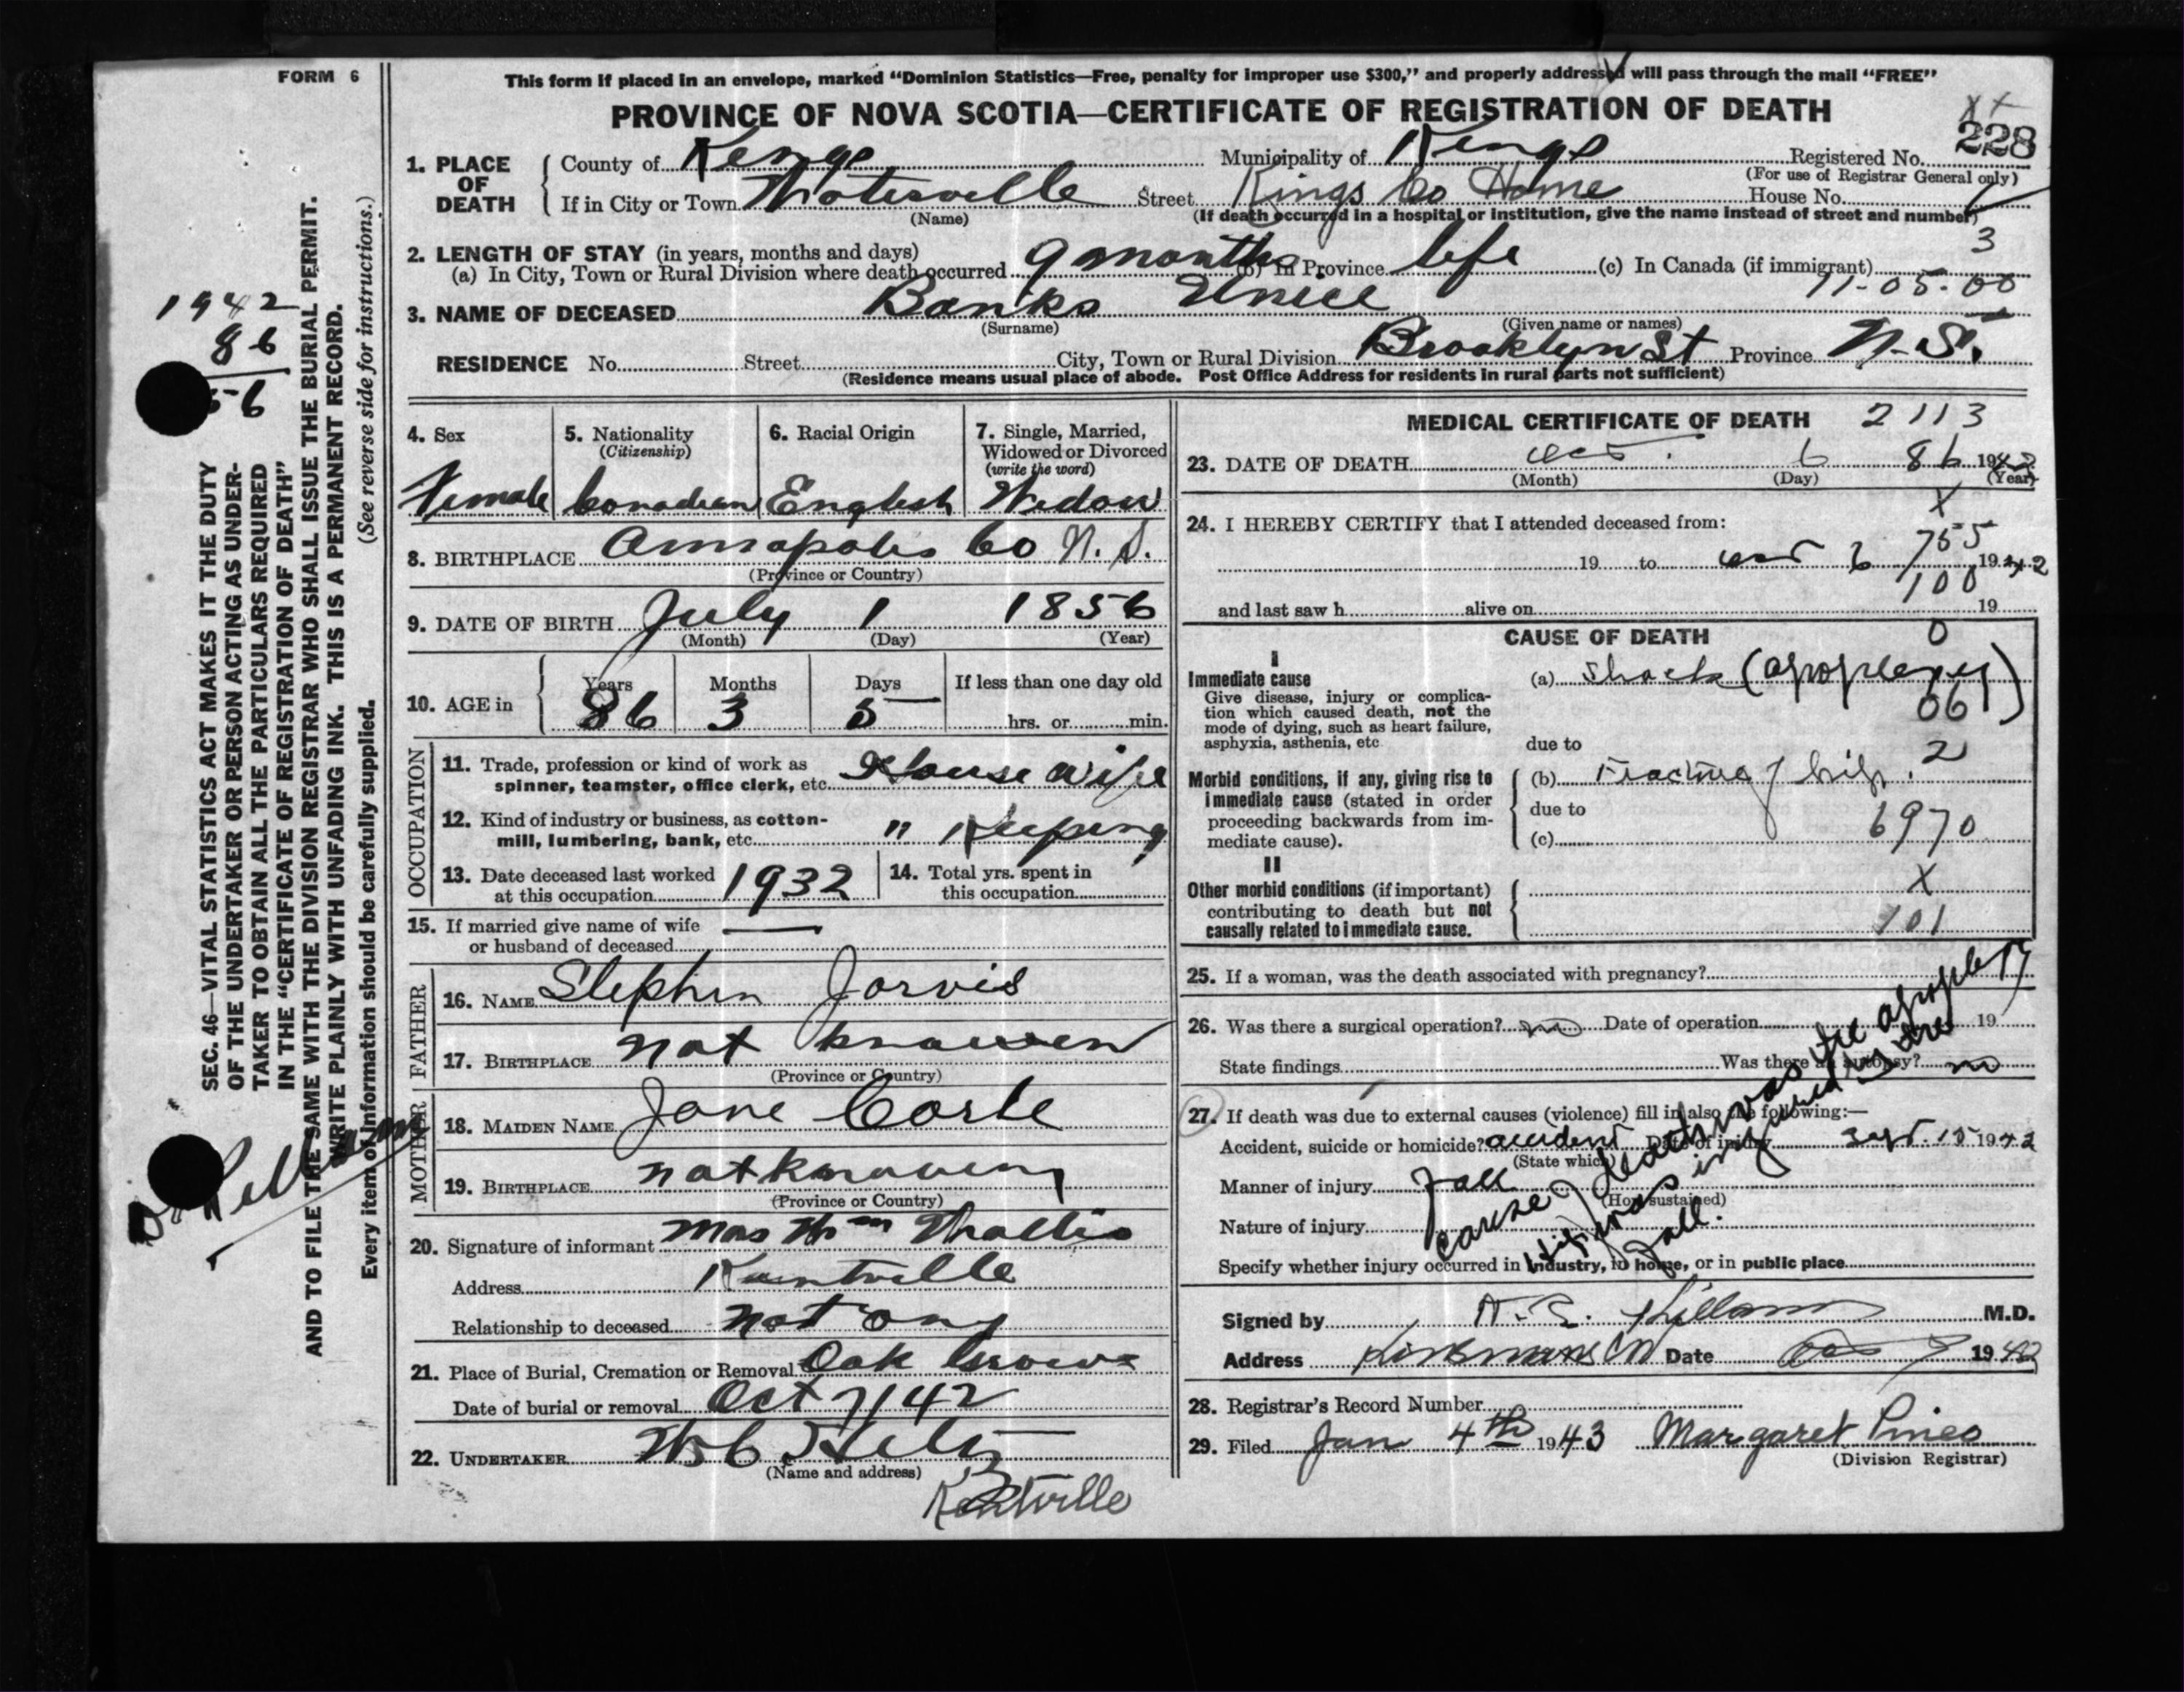 FORM 6
This form if placed in an envelope, marked "Dominion Statistics—Free, penalty for improper use $300," and properly addressed will pass through the mail "FREE"
PROVINCE OF NOVA SCOTIA—CERTIFICATE OF REGISTRATION OF DEATH
228
1. PLACE OF DEATH County of Kings Municipality of Kings Registered No.
(For use of Registrar General only)
If in City or Town Waterville Street Kings Co Home House No.
(Name) (If death occurred in a hospital or institution, give the name instead of street and number)
3
2. LENGTH OF STAY (in years, months and days)
(a) In City, Town or Rural Division where death occurred 9 months (b) In Province life (c) In Canada (if immigrant)
11-05-00
3. NAME OF DECEASED Banks Unice
(Surname) (Given name or names)
RESIDENCE No. Street City, Town or Rural Division Brooklyn St Province N.S.
(Residence means usual place of abode. Post Office Address for residents in rural parts not sufficient)
1942
86
56
SEC. 46—VITAL STATISTICS ACT MAKES IT THE DUTY
OF THE UNDERTAKER OR PERSON ACTING AS UNDER-
TAKER TO OBTAIN ALL THE PARTICULARS REQUIRED
IN THE "CERTIFICATE OF REGISTRATION OF DEATH"
AND TO FILE THE SAME WITH THE DIVISION REGISTRAR WHO SHALL ISSUE THE BURIAL PERMIT.
WRITE PLAINLY WITH UNFADING INK. THIS IS A PERMANENT RECORD.
Every item of Information should be carefully supplied. (See reverse side for instructions.)
Dr Killam
4. Sex 5. Nationality (Citizenship) 6. Racial Origin 7. Single, Married, Widowed or Divorced (write the word)
Female Canadian English Widow
8. BIRTHPLACE Annapolis Co N.S.
(Province or Country)
9. DATE OF BIRTH July 1 1856
(Month) (Day) (Year)
10. AGE in Years Months Days If less than one day old
86 3 5 hrs. or min.
OCCUPATION
11. Trade, profession or kind of work as
spinner, teamster, office clerk, etc. House wife
12. Kind of industry or business, as cotton-
mill, lumbering, bank, etc. " Keeping
13. Date deceased last worked at this occupation 1932 14. Total yrs. spent in this occupation
15. If married give name of wife
or husband of deceased —
FATHER
16. NAME Stephen Jarvis
17. BIRTHPLACE not known
(Province or Country)
MOTHER
18. MAIDEN NAME Jane
19. BIRTHPLACE not known
(Province or Country)
20. Signature of informant Mrs Wm
Address Kentville
Relationship to deceased not any
21. Place of Burial, Cremation or Removal Oak Grove
Date of burial or removal Oct 7/42
22. UNDERTAKER
(Name and address)
Kentville
MEDICAL CERTIFICATE OF DEATH 2113
23. DATE OF DEATH Oct. 6 86 1942
(Month) (Day) (Year)
X
24. I HEREBY CERTIFY that I attended deceased from:
755
19 to Oct 6 1942
100
and last saw h alive on 19
CAUSE OF DEATH 0
I
Immediate cause (a) Shock (apoplexy)
Give disease, injury or complica-
tion which caused death, not the
mode of dying, such as heart failure,
asphyxia, asthenia, etc
06
due to 2
Morbid conditions, if any, giving rise to
immediate cause (stated in order
proceeding backwards from im-
mediate cause).
(b) Fracture of hip.
due to
(c) 6970
II
Other morbid conditions (if important)
contributing to death but not
causally related to immediate cause.
X
101
25. If a woman, was the death associated with pregnancy?
26. Was there a surgical operation? no Date of operation 19
State findings Was there an autopsy? no
27. If death was due to external causes (violence) fill in also the following:—
Accident, suicide or homicide? accident Date of injury Sept. 15 1942
(State which)
Manner of injury Fall
(How sustained)
Nature of injury
Specify whether injury occurred in Industry, in home, or in public place
cause of death was the apoplexy
hip was injured by the
fall.
Signed by Killam M.D.
Address Date Oct 1942
28. Registrar's Record Number
29. Filed Jan 4th 1943 Margaret Pineo
(Division Registrar)